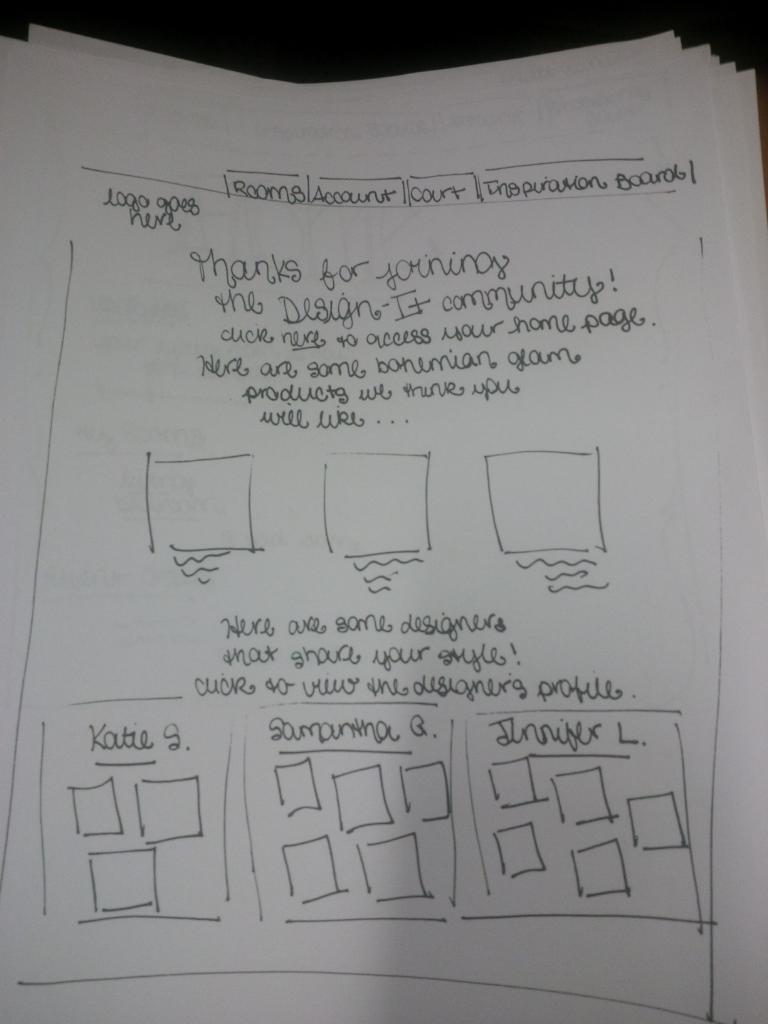 logo goes
here
Rooms Account Cart Inspiration Board
Thanks for joining
the Design-It community!
click here to access your home page.
Here are some bohemian glam
products we think you
will like ...
Here are some designers
that share your style!
click to view the designer's profile.
Katie S. Samantha G. Jennifer L.